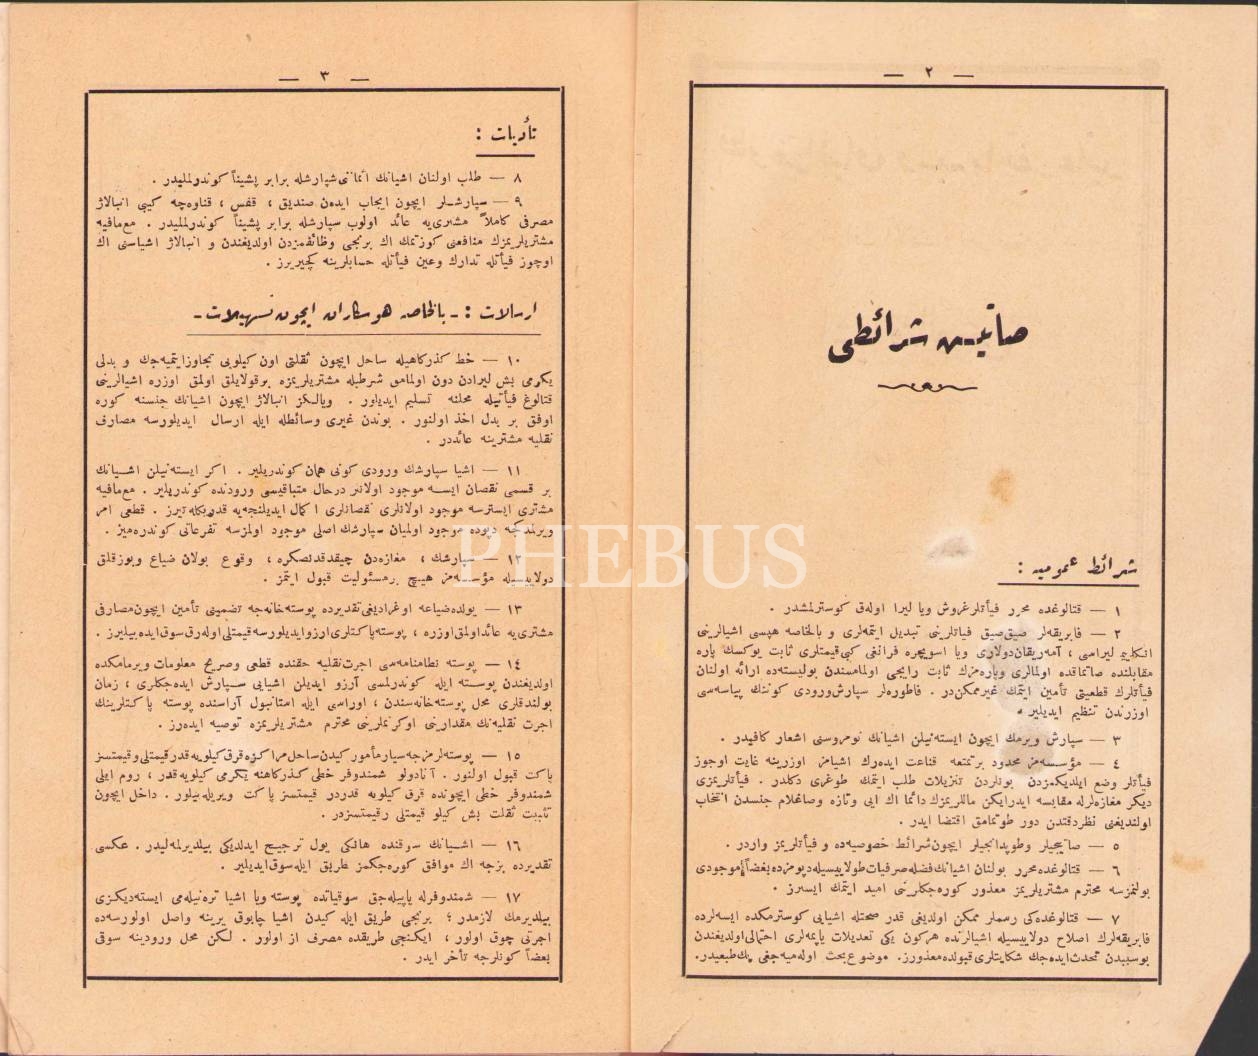 — ٢ —
صاتيش شرائطى
شرائط عموميه :
١ — قتالوغده محرر فيأتلر غروش ويا ليرا اوله‌رق كوسترلمشدر .
٢ — فابريقه‌لر صيق صيق فيأتلرينى تبديل ايتمه‌لرى و بالخاصه هپسى اشيالرينى
انكليز ليراسى ، آمه‌ريقان دولارى ويا اسويچره فرانغى كبى قيمتلرى ثابت يوكسك پاره
مقابلنده صاتماقده اولمالرى وپاره‌مزك ثابت رايجى اولمامسندن بوليسته‌ده ارائه اولنان
فيأتلرك قطعيتى تأمين ايتمك غير ممكن‌در . فاطوره‌لر سپارش ورودى كوننك پياسه‌سى
اوزرندن تنظيم ايديلير .
٣ — سپارش ويرمك ايچون ايسته‌نيلن اشيانك نومروسنى اشعار كافيدر .
٤ — مؤسسه‌مز محدود بر تمتعه قناعت ايده‌رك اشيامز اوزرينه غايت اوجوز
فيأتلر وضع ايلديكمزدن بونلردن تنزيلات طلب ايتمك طوغرى دكلدر . فيأتلريمزى
ديكر مغازه‌لرله مقايسه ايدرايكن ماللريمزك دائما اك ايى وتازه وصاغلام جنسدن انتخاب
اولنديغنى نظر دقتدن دور طوتمامق اقتضا ايدر .
٥ — صاتيجيلر وطوپدانجيلر ايچون شرائط خصوصيه‌ده و فيأتلريمز واردر .
٦ — قتالوغده محرر بولنان اشيانك فضله صرفيات طولاييسيله ديپومزده بعضاً موجودى
بولنمزسه محترم مشتريلريمز معذور كوره‌جكلرينى اميد ايتمك ايسترز .
٧ — قتالوغده‌كى رسملر ممكن اولديغى قدر صحتله اشيايى كوسترمكده ايسه‌لرده
فابريقه‌لرك اصلاح دولاييسيله اشيالرنده هركون يكى تعديلات ياپمه‌لرى احتمالى اولديغندن
بوسببدن تحدث ايده‌جك شكايتلرى قبولده معذورز . موضوع بحث اوله‌ميه‌جغى پك طبيعيدر.
— ٣ —
تأديات :
٨ — طلب اولنان اشيانك اثماننى سپارشله برابر پشيناً كوندرلمليدر .
٩ — سپارشلر ايچون ايجاب ايدن صنديق ، قفس ، قناوه‌چه كبى انبالاژ
مصرفى كاملاً مشترى‌يه عائد اولوب سپارشله برابر پشيناً كوندرلمليدر . مع‌مافيه
مشتريلريمزك منافعنى كوزتمك اك برنجى وظائفمزدن اولديغندن و انبالاژ اشياسنى اك
اوجوز فيأتله تدارك وعين فيأتله حسابلرينه كچيريرز .
ارسالات : - بالخاصه هوسكاران ايچون تسهيلات -
١٠ — خط كذركاهيله ساحل ايچون ثقلتى اون كيلويى تجاوز ايتميه‌جك و بدلى
يكرمى بش ليرادن دون اولمامق شرطيله مشتريلريمزه بر قولايلق اولمق اوزره اشيالرينى
قتالوغ فيأتيله محلنه تسليم ايديلور . ويالكز انبالاژ ايچون اشيانك جنسنه كوره
اوفق بر بدل اخذ اولنور . بوندن غيرى وسائطله ايله ارسال ايديلورسه مصارف
نقليه مشترينه عائددر .
١١ — اشيا سپارشك ورودى كونى همان كوندريلير . اكر ايسته‌نيلن اشيانك
بر قسمى نقصان ايسه موجود اولانلر درحال متباقيسى ورودنده كوندريلير . مع‌مافيه
مشترى ايسترسه موجود اولانلرى نقصانلرى اكمال ايديلنجه‌يه قدر بكله‌تيرز . قطعى امر
ويرلمدكجه ديپوده موجود اولميان سپارشك اصلى موجود اولمزسه تفرعاتى كوندره‌ميز .
١٢ — سپارشك ، مغازه‌دن چيقدقدنصكره ، وقوع بولان ضياع وبوزقلق
دولاييسيله مؤسسه‌مز هيچ بر مسئوليت قبول ايتمز .
١٣ — يولده ضياعه اوغراديغى تقديرده پوسته‌خانه‌جه تضمينى تأمين ايچون مصارفى
مشترى‌يه عائد اولمق اوزره ، پوسته پاكتلرى ارزو ايديلورسه قيمتلى اوله‌رق سوق ايده‌بيليرز .
١٤ — پوسته نظامنامه‌سى اجرت نقليه حقنده قطعى وصريح معلومات ويرمامكده
اولديغندن پوسته ايله كوندرلمسى آرزو ايديلن اشيايى سپارش ايده‌جكلرى ، زمان
بولندقلرى محل پوسته‌خانه‌سندن ، اوراسى ايله استانبول آراسنده پوسته پاكتلرينك
اجرت نقليه‌نك مقدارينى اوكرنملرينى محترم مشتريلريمزه توصيه ايده‌رز .
١٥ — پوسته‌لرمزجه سيار مأمور كيدن ساحل مراكزه قرق كيلويه قدر قيمتلى وقيمتسز
پاكت قبول اولنور . آنادولو شمندوفر خطى كذركاهنه يكرمى كيلويه قدر ، روم ايلى
شمندوفر خطى ايچونده قرق كيلويه قدردر قيمتسز پاكت ويريله‌بيلور . داخل ايچون
تثبيت ثقلت بش كيلو قيمتلى وقيمتسزدر .
١٦ — اشيانك سوقنده هانكى يول ترجيح ايدلديكى بيلديرلمه‌ليدر . عكسى
تقديرده بزجه اك موافق كوره‌جكمز طريق ايله سوق ايديلير .
١٧ — شمندوفرله ياپيله‌جق سوقياتده پوسته ويا اشيا تره‌نيله‌مى ايسته‌ديكزى
بيلديرمك لازمدر ؛ برنجى طريق ايله كيدن اشيا چابوق يرينه واصل اولورسه‌ده
اجرتى چوق اولور ، ايكنجى طريقده مصرف از اولور . لكن محل ورودينه سوقى
بعضاً كونلرجه تأخر ايدر .
PHEBUS